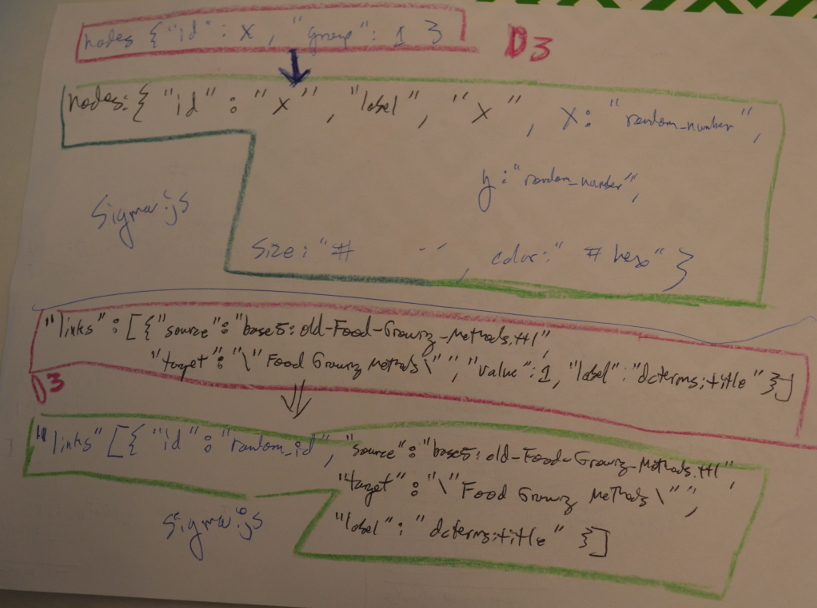 nodes {"id" : X , "group" : 1 }
D3
nodes: { "id" : "X" , "label" , "X" , X : "random_number",
y : "random_number",
Sigma.js
Size : "# " , color : " # hex" }
"links" : [ { "source" : "base5: old-Food-Growing-Methods.ttl",
"target" : "\"Food Growing Methods\"", "value" : 1, "label" : "dcterms:title" } ]
D3
"links" [ { "id" : "random_id", "source" : "base5: old-Food-Growing-Methods.ttl",
"target" : "\"Food Growing Methods\"",
"label" : "dcterms:title" } ]
Sigma.js